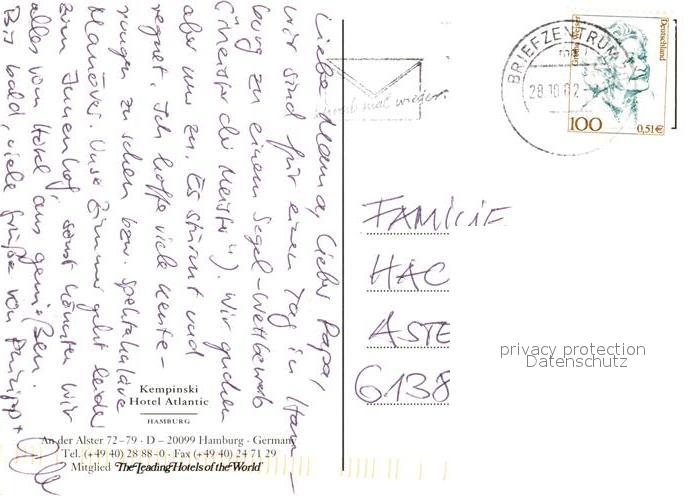 Liebe Mama, lieber Papa,
wir sind für einen Tag in Ham-
burg zu einem Segel-Wettbewerb
("Meister der Meister"). Wir gucken
aber nur zu. Es stürmt und
regnet. Ich hoffe viele Kente-
rungen zu sehen bzw. spektakuläre
Manöver. Unser Zimmer geht leider
zum Innenhof, sonst könnten wir
alles vom Hotel aus genießen.
Bis bald, viele Grüße von Philipp +
BRIEFZENTRUM
28.10.02
Schreib mal wieder.
Deutschland
100
0,51€
FAMILIE
HAC
ASTE
6138
privacy protection
Datenschutz
Kempinski
Hotel Atlantic
HAMBURG
An der Alster 72–79 · D – 20099 Hamburg · Germany
Tel. (++49 40) 28 88-0 · Fax (++49 40) 24 71 29
Mitglied The Leading Hotels of the World